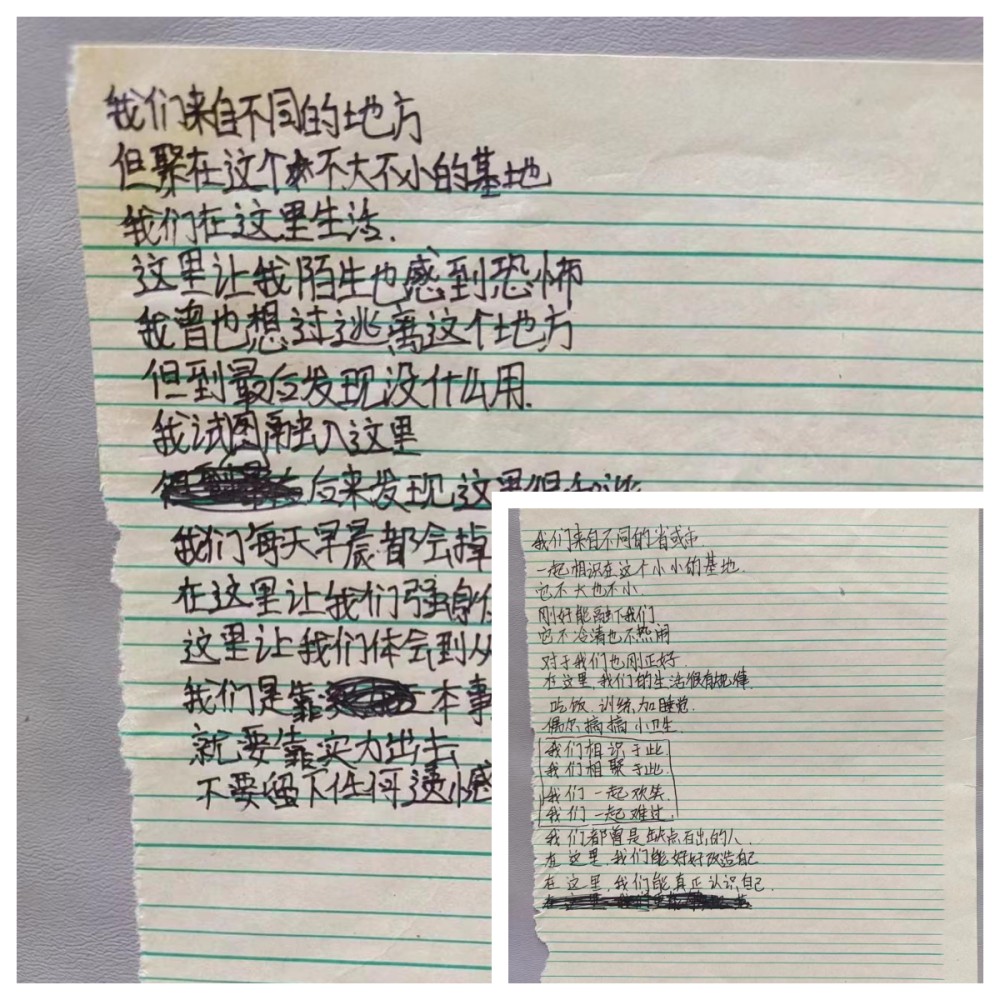 我们来自不同的地方
但聚在这个不大不小的基地
我们在这里生活.
这里让我陌生也感到恐怖
我曾也想过逃离这个地方
但到最后发现没什么用.
我试图融入这里
后来发现这里很
我们每天早晨都会掉
在这里让我们强身
这里让我们体会到从
我们是靠 本事
就要靠实力出去
不要留下任何遗憾
我们来自不同的省或市.
一起相识在这个小小的基地.
它不大也不小
刚好能融下我们
它不冷清也不热闹
对于我们也刚正好.
在这里,我们的生活很有规律
吃饭.训练加睡觉.
偶尔搞搞小卫生
我们相识于此
我们相聚于此.
我们一起欢笑
我们一起难过.
我们都曾是缺点百出的人.
在这里,我们能好好改造自己
在这里,我们能真正认识自己.